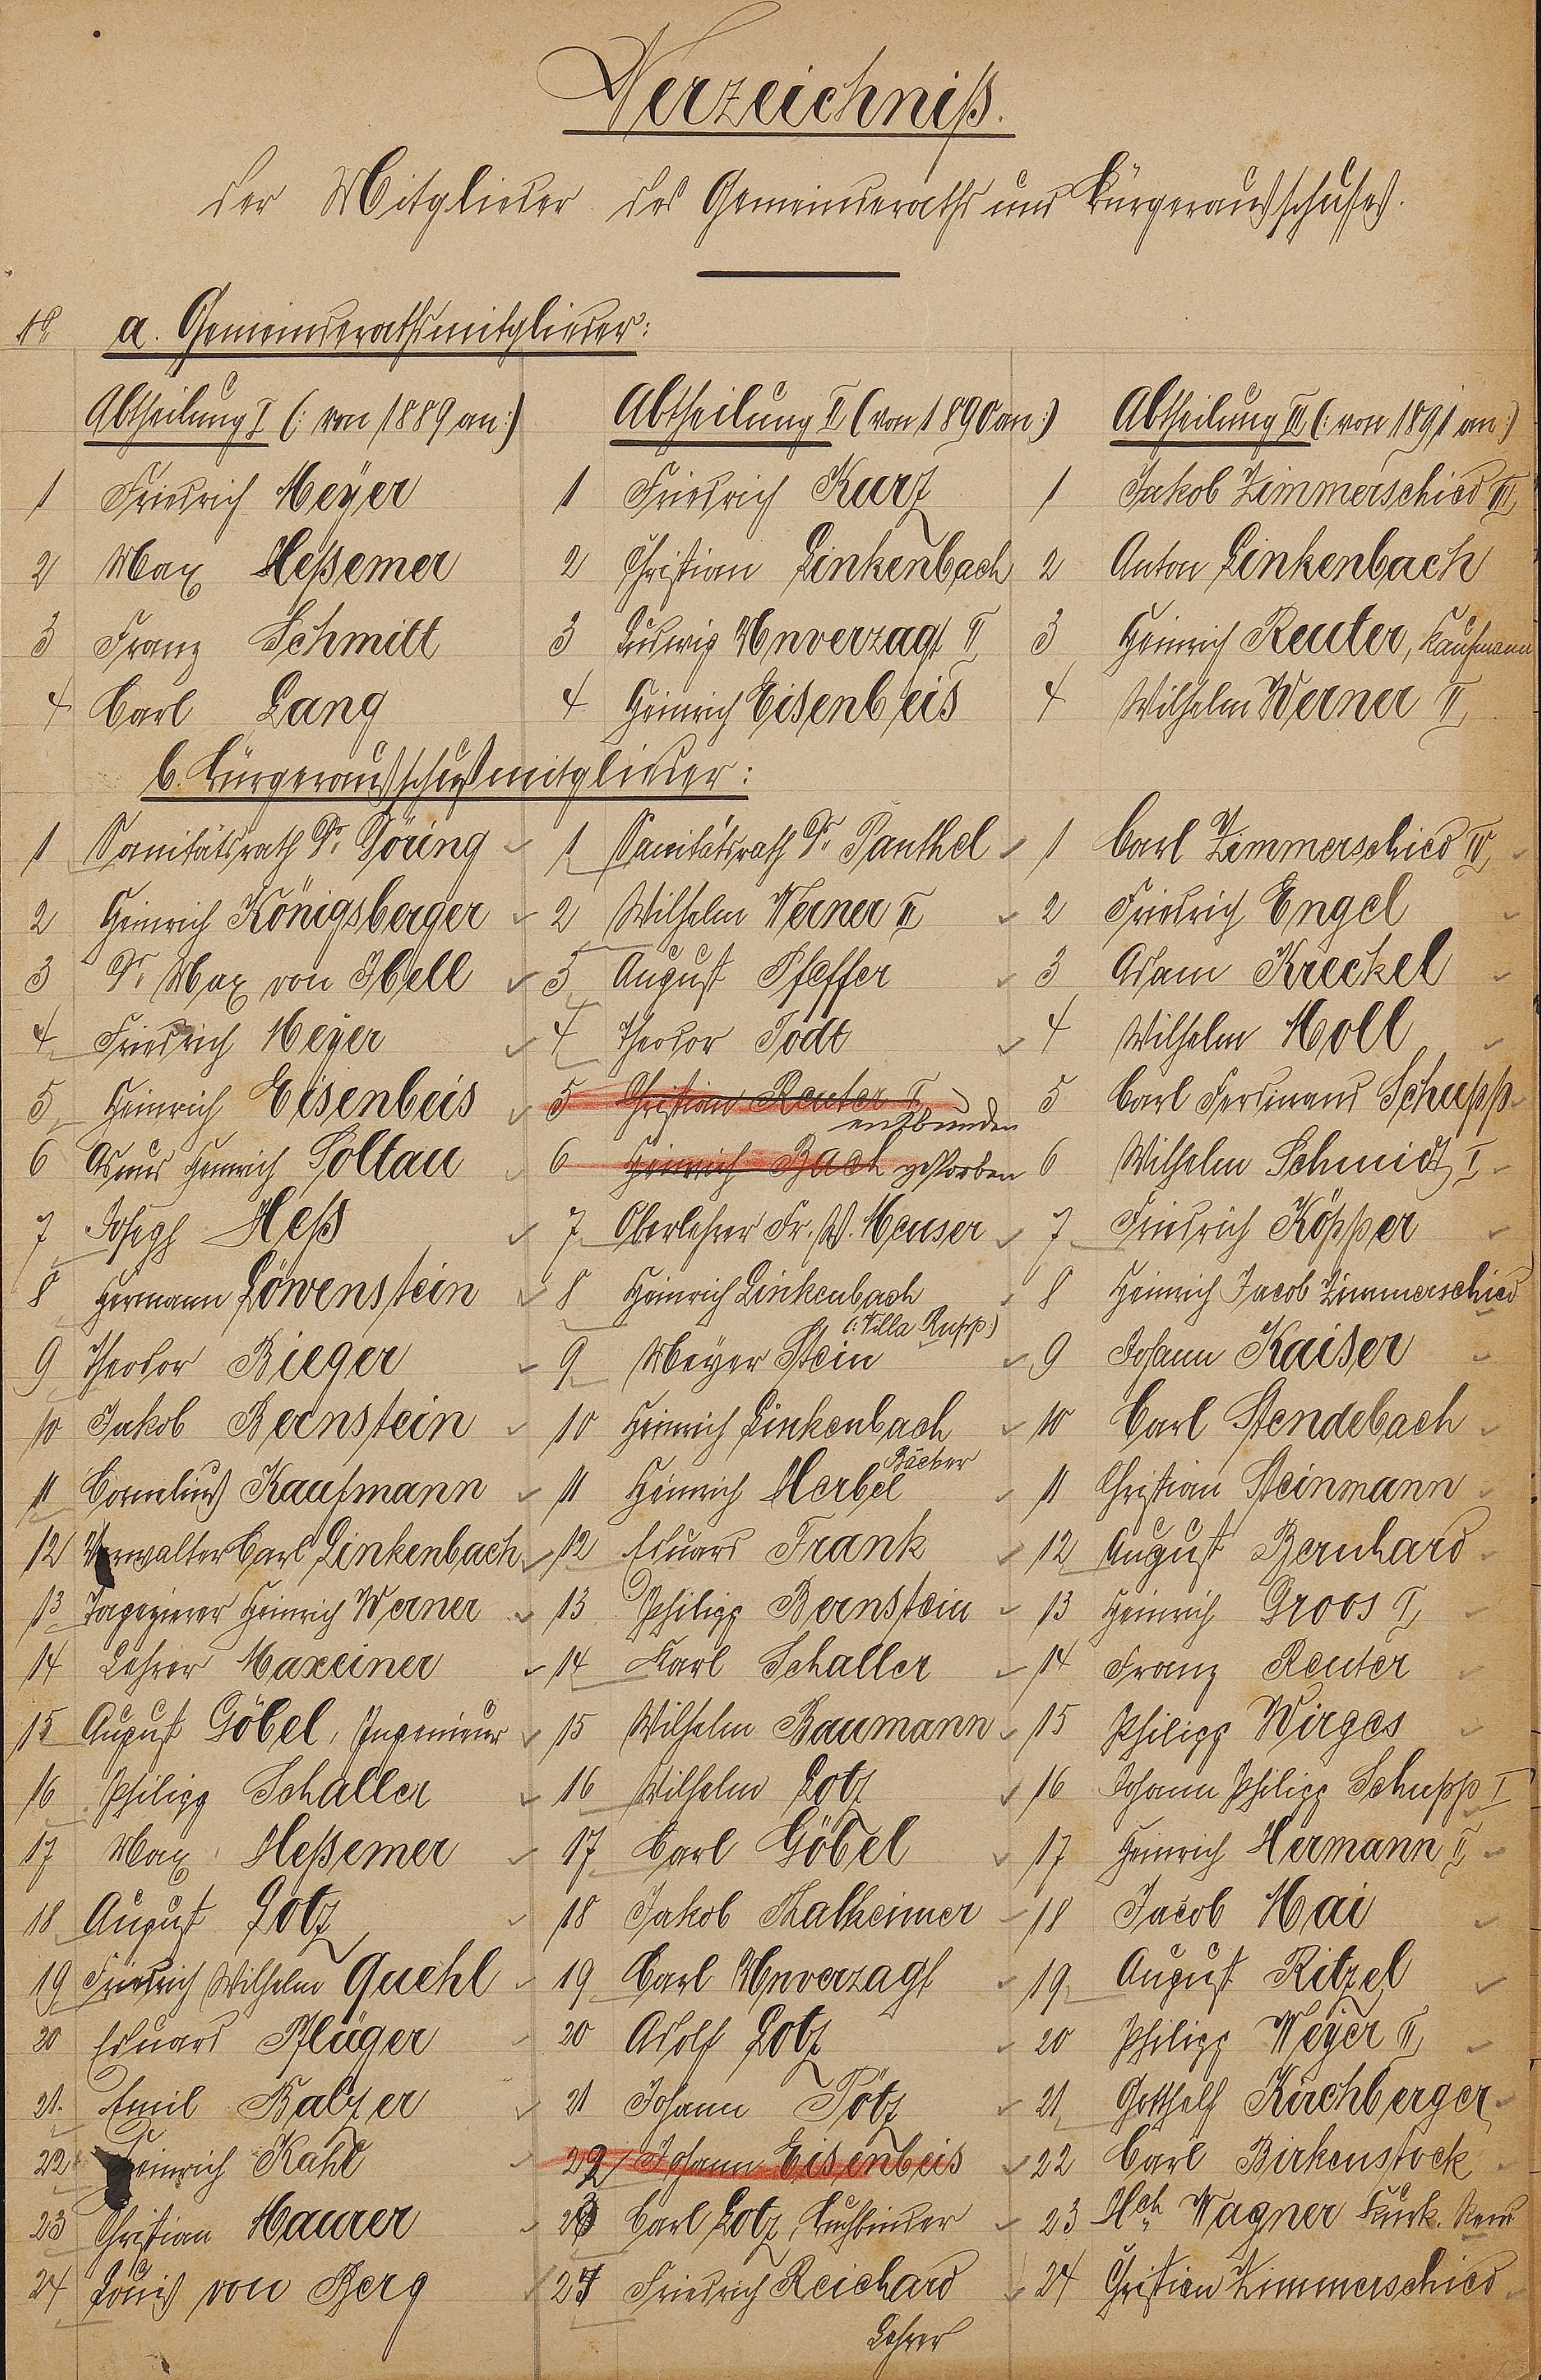 Verzeichniß.
der Mitglieder des Gemeinderaths und Bürgerausschußes.
No a. Gemeinderathsmitglieder:
Abtheilung I (: von 1889 an:)
1 Friedrich Meyer
2 Max Heßemer
3 Franz Schmitt
4 Carl Lang
Abtheilung II (von 1890 an:)
1 Friedrich Kurz
2 Christian Linkenbach
3 Ludwig Unverzagt II
4 Heinrich Eisenbeis
Abtheilung III (: von 1891 an:)
1 Jakob Zimmerschied III
2 Anton Linkenbach
3 Heinrich Reuter, Kaufmann
4 Wilhelm Werner II
b. Bürgerausschußmitglieder:
1 Sanitätsrath Dr. Döring
2 Heinrich Königsberger
3 Dr. Max von Ibell
4 Friedrich Meyer
5 Heinrich Eisenbeis
6 Asmus Heinrich Soltau
7 Joseph Heß
8 Hermann Löwenstein
9 Theodor Rieger
10 Jakob Bernstein
11 Cornelius Kaufmann
12 Verwalter Carl Linkenbach
13 Tapezierer Heinrich Werner
14 Lehrer Maxeiner
15 August Göbel, Ingenieur
16 Philipp Schaller
17 Max Heßemer
18 August Lotz
19 Friedrich Wilhelm Quehl
20 Eduard Pflüger
21. Emil Balzer
22 Heinrich Kahl
23 Christian Maurer
24 Louis von Berg
1 Sanitätsrath Dr. Panthel
2 Wilhelm Werner II
3 August Pfeffer
4 Theodor Todt
5 Christian Reuter I.
entbunden
6 Heinrich Bach gestorben
7 Oberlehrer Fr. W. Meuser
8 Heinrich Linkenbach
(: Villa Rupp:)
9 Meyer Stein
10 Heinrich Linkenbach
Bäcker
11 Heinrich Herbel
12 Eduard Frank
13 Philipp Bernstein
14 Karl Schaller
15 Wilhelm Baumann
16 Wilhelm Lotz
17 Carl Göbel
18 Jakob Thalheimer
19 Carl Unverzagt
20 Adolf Lotz
21 Johann Pötz
22 Johann Eisenbeis
23 Carl Lotz, Buchbinder
24 Friedrich Reichard
Lehrer
1 Carl Zimmerschied IV
2 Friedrich Engel
3 Adam Kreckel
4 Wilhelm Moll
5 Carl Ferdinand Schupp
6 Wilhelm Schmidt I
7 Friedrich Köpper
8 Heinrich Jacob Zimmerschied
9 Johann Kaiser
10 Carl Stendebach
11 Christian Steinmann
12 August Bernhard
13 Heinrich Groos I
14 Franz Reuter
15 Philipp Wirges
16 Johann Philipp Schupp I
17 Heinrich Hermann II
18 Jacob Mai
19 August Ritzel
20 Philipp Meyer II
21 Gotthelf Kirchberger
22 Carl Birkenstock
23 Hch. Wagner
24 Christian Zimmerschied